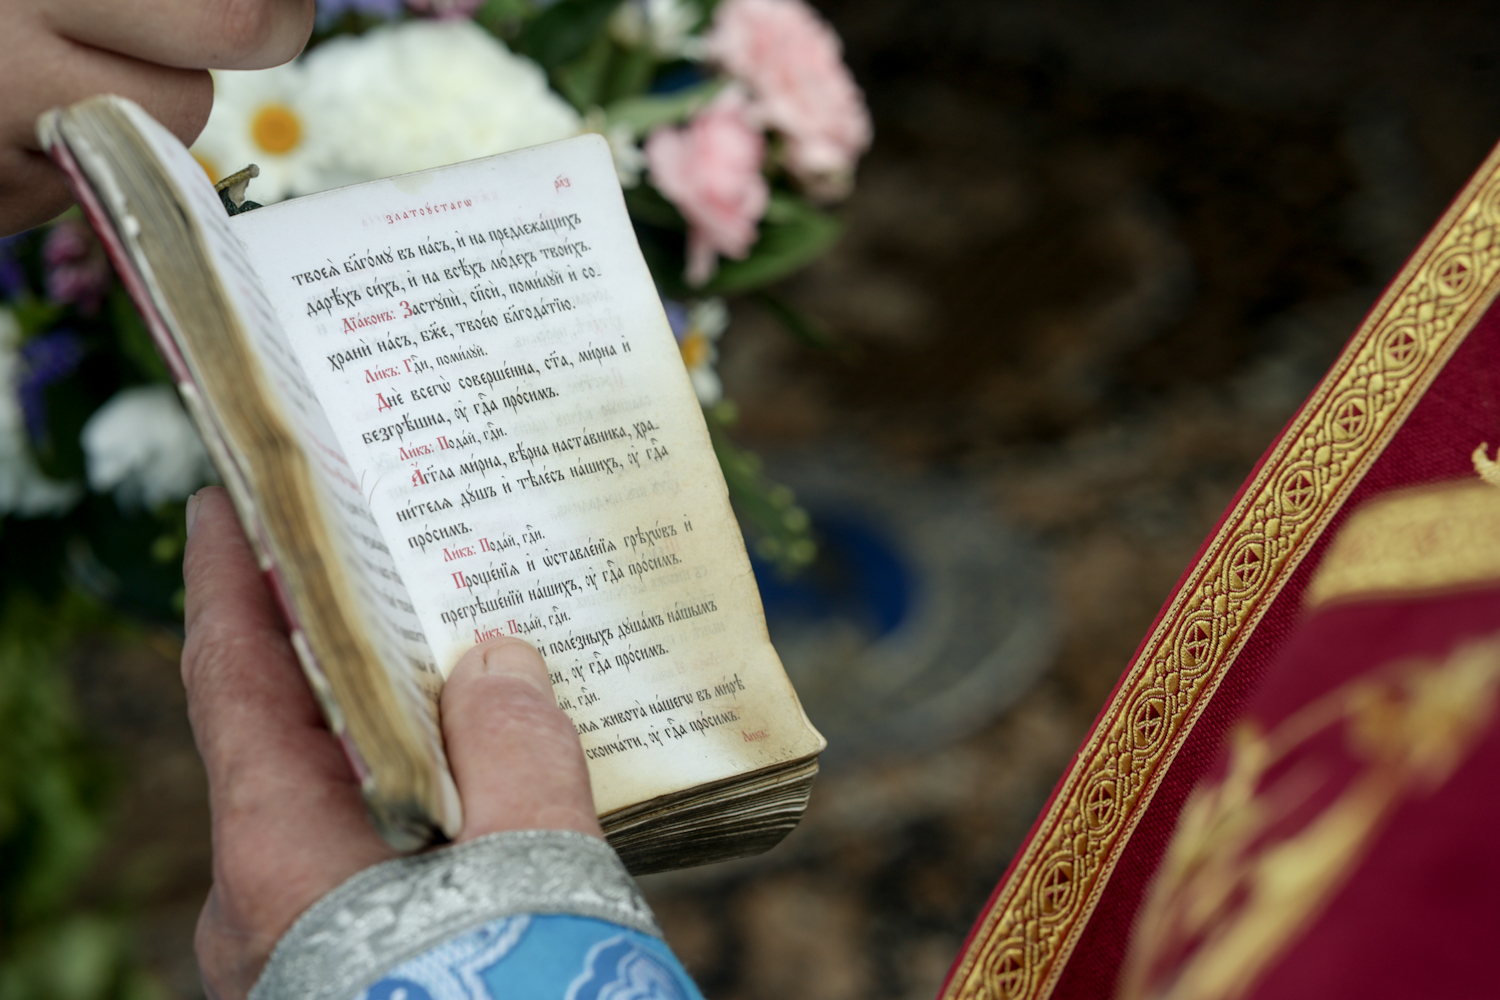 ЗЛАТОꙊСТАГѠ
твоеѧ̀ бл҃го́мꙋ въ на́съ, и҆ на предлежа́щихъ
дарѣ́хъ си́хъ, и҆ на всѣ́хъ лю́дехъ твои́хъ.
Дїа́конъ: Застꙋпѝ, сп҃сѝ, поми́лꙋй и҆ со-
хранѝ на́съ, бж҃е, твое́ю бл҃года́тїю.
Ли́къ: Гдⷭ҇и, поми́лꙋй.
Днѐ всегѡ̀ соверше́нна, ст҃а, ми́рна и҆
безгрѣ́шна, ᲂу҆ гдⷭ҇а про́симъ.
Ли́къ: Пода́й, гдⷭ҇и.
А҆́гг҃ла ми́рна, вѣ́рна наста́вника, хра-
ни́телѧ дꙋ́шъ и҆ тѣле́съ на́шихъ, ᲂу҆ гдⷭ҇а
про́симъ.
Ли́къ: Пода́й, гдⷭ҇и.
Проще́нїѧ и҆ ѡ҆ставле́нїѧ грѣхѡ́въ и҆
прегрѣше́нїй на́шихъ, ᲂу҆ гдⷭ҇а про́симъ.
Ли́къ: Пода́й, гдⷭ҇и.
и҆ поле́зныхъ дꙋша́мъ на́шымъ
ᲂу҆ гдⷭ҇а про́симъ.
гдⷭ҇и.
живота̀ на́шегѡ въ ми́рѣ
сконча́ти, ᲂу҆ гдⷭ҇а про́симъ.
Ли́къ: